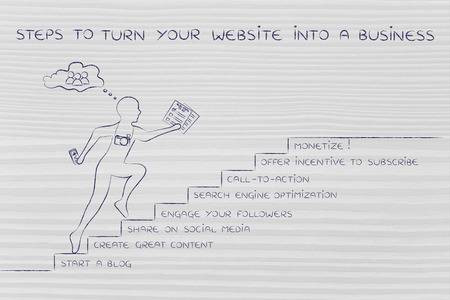 STEPS TO TURN YOUR WEBSITE INTO A BUSINESS
MONETIZE!
OFFER INCENTIVE TO SUBSCRIBE
CALL-TO-ACTION
SEARCH ENGINE OPTIMIZATION
ENGAGE YOUR FOLLOWERS
SHARE ON SOCIAL MEDIA
CREATE GREAT CONTENT
START A BLOG